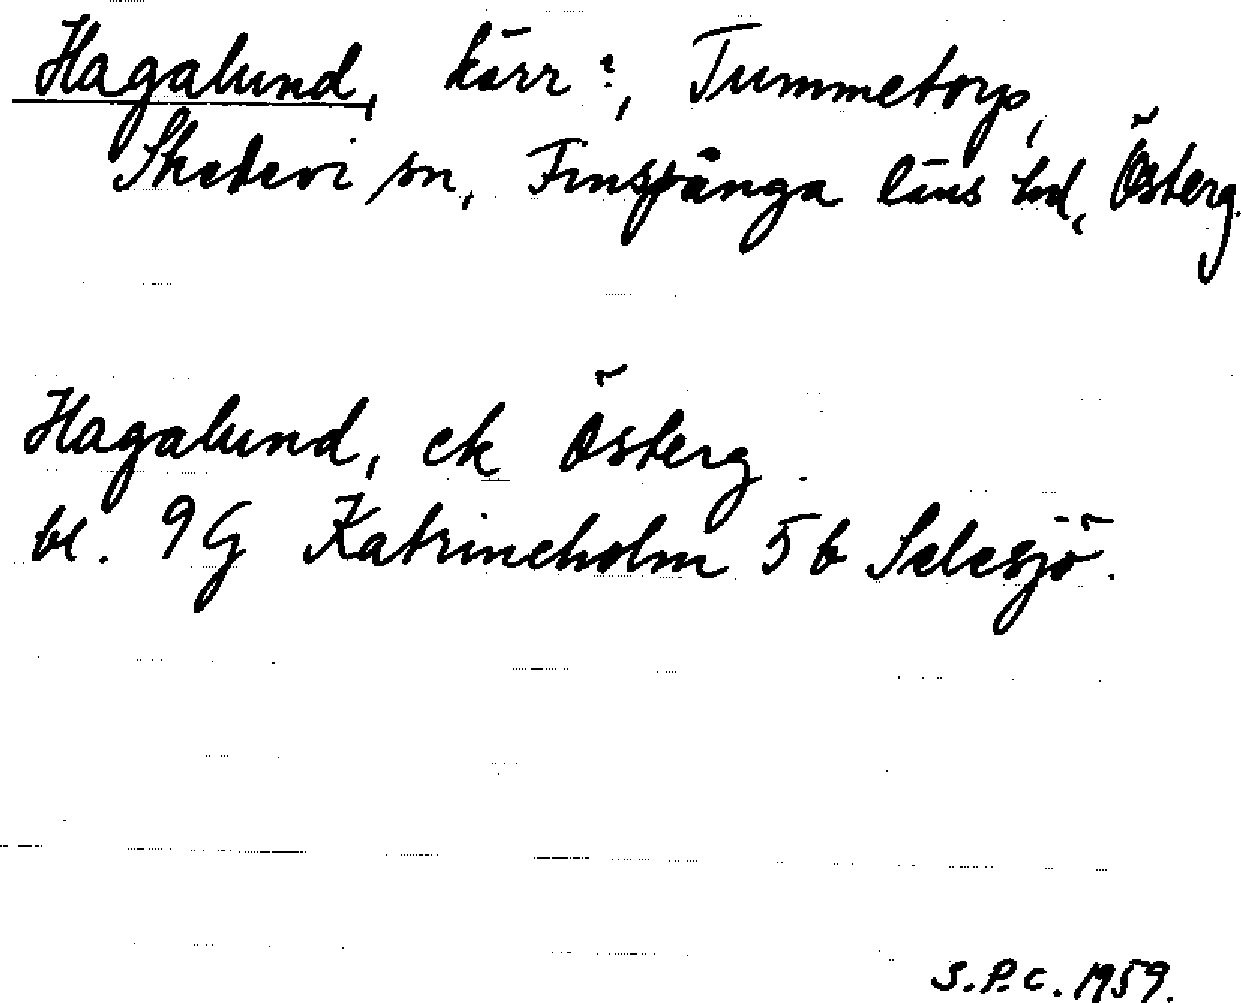 Hagalund, kärr?, Tummetorp,
Skedevi sn, Finspånga läns hd, Österg.
Hagalund, ek Österg.
bl. 9G Katrineholm 5b Salesjö.
S.P.C. 1959.